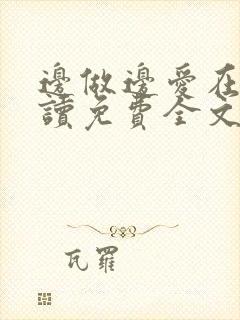 邊做邊愛在
讀免費全文
瓦羅